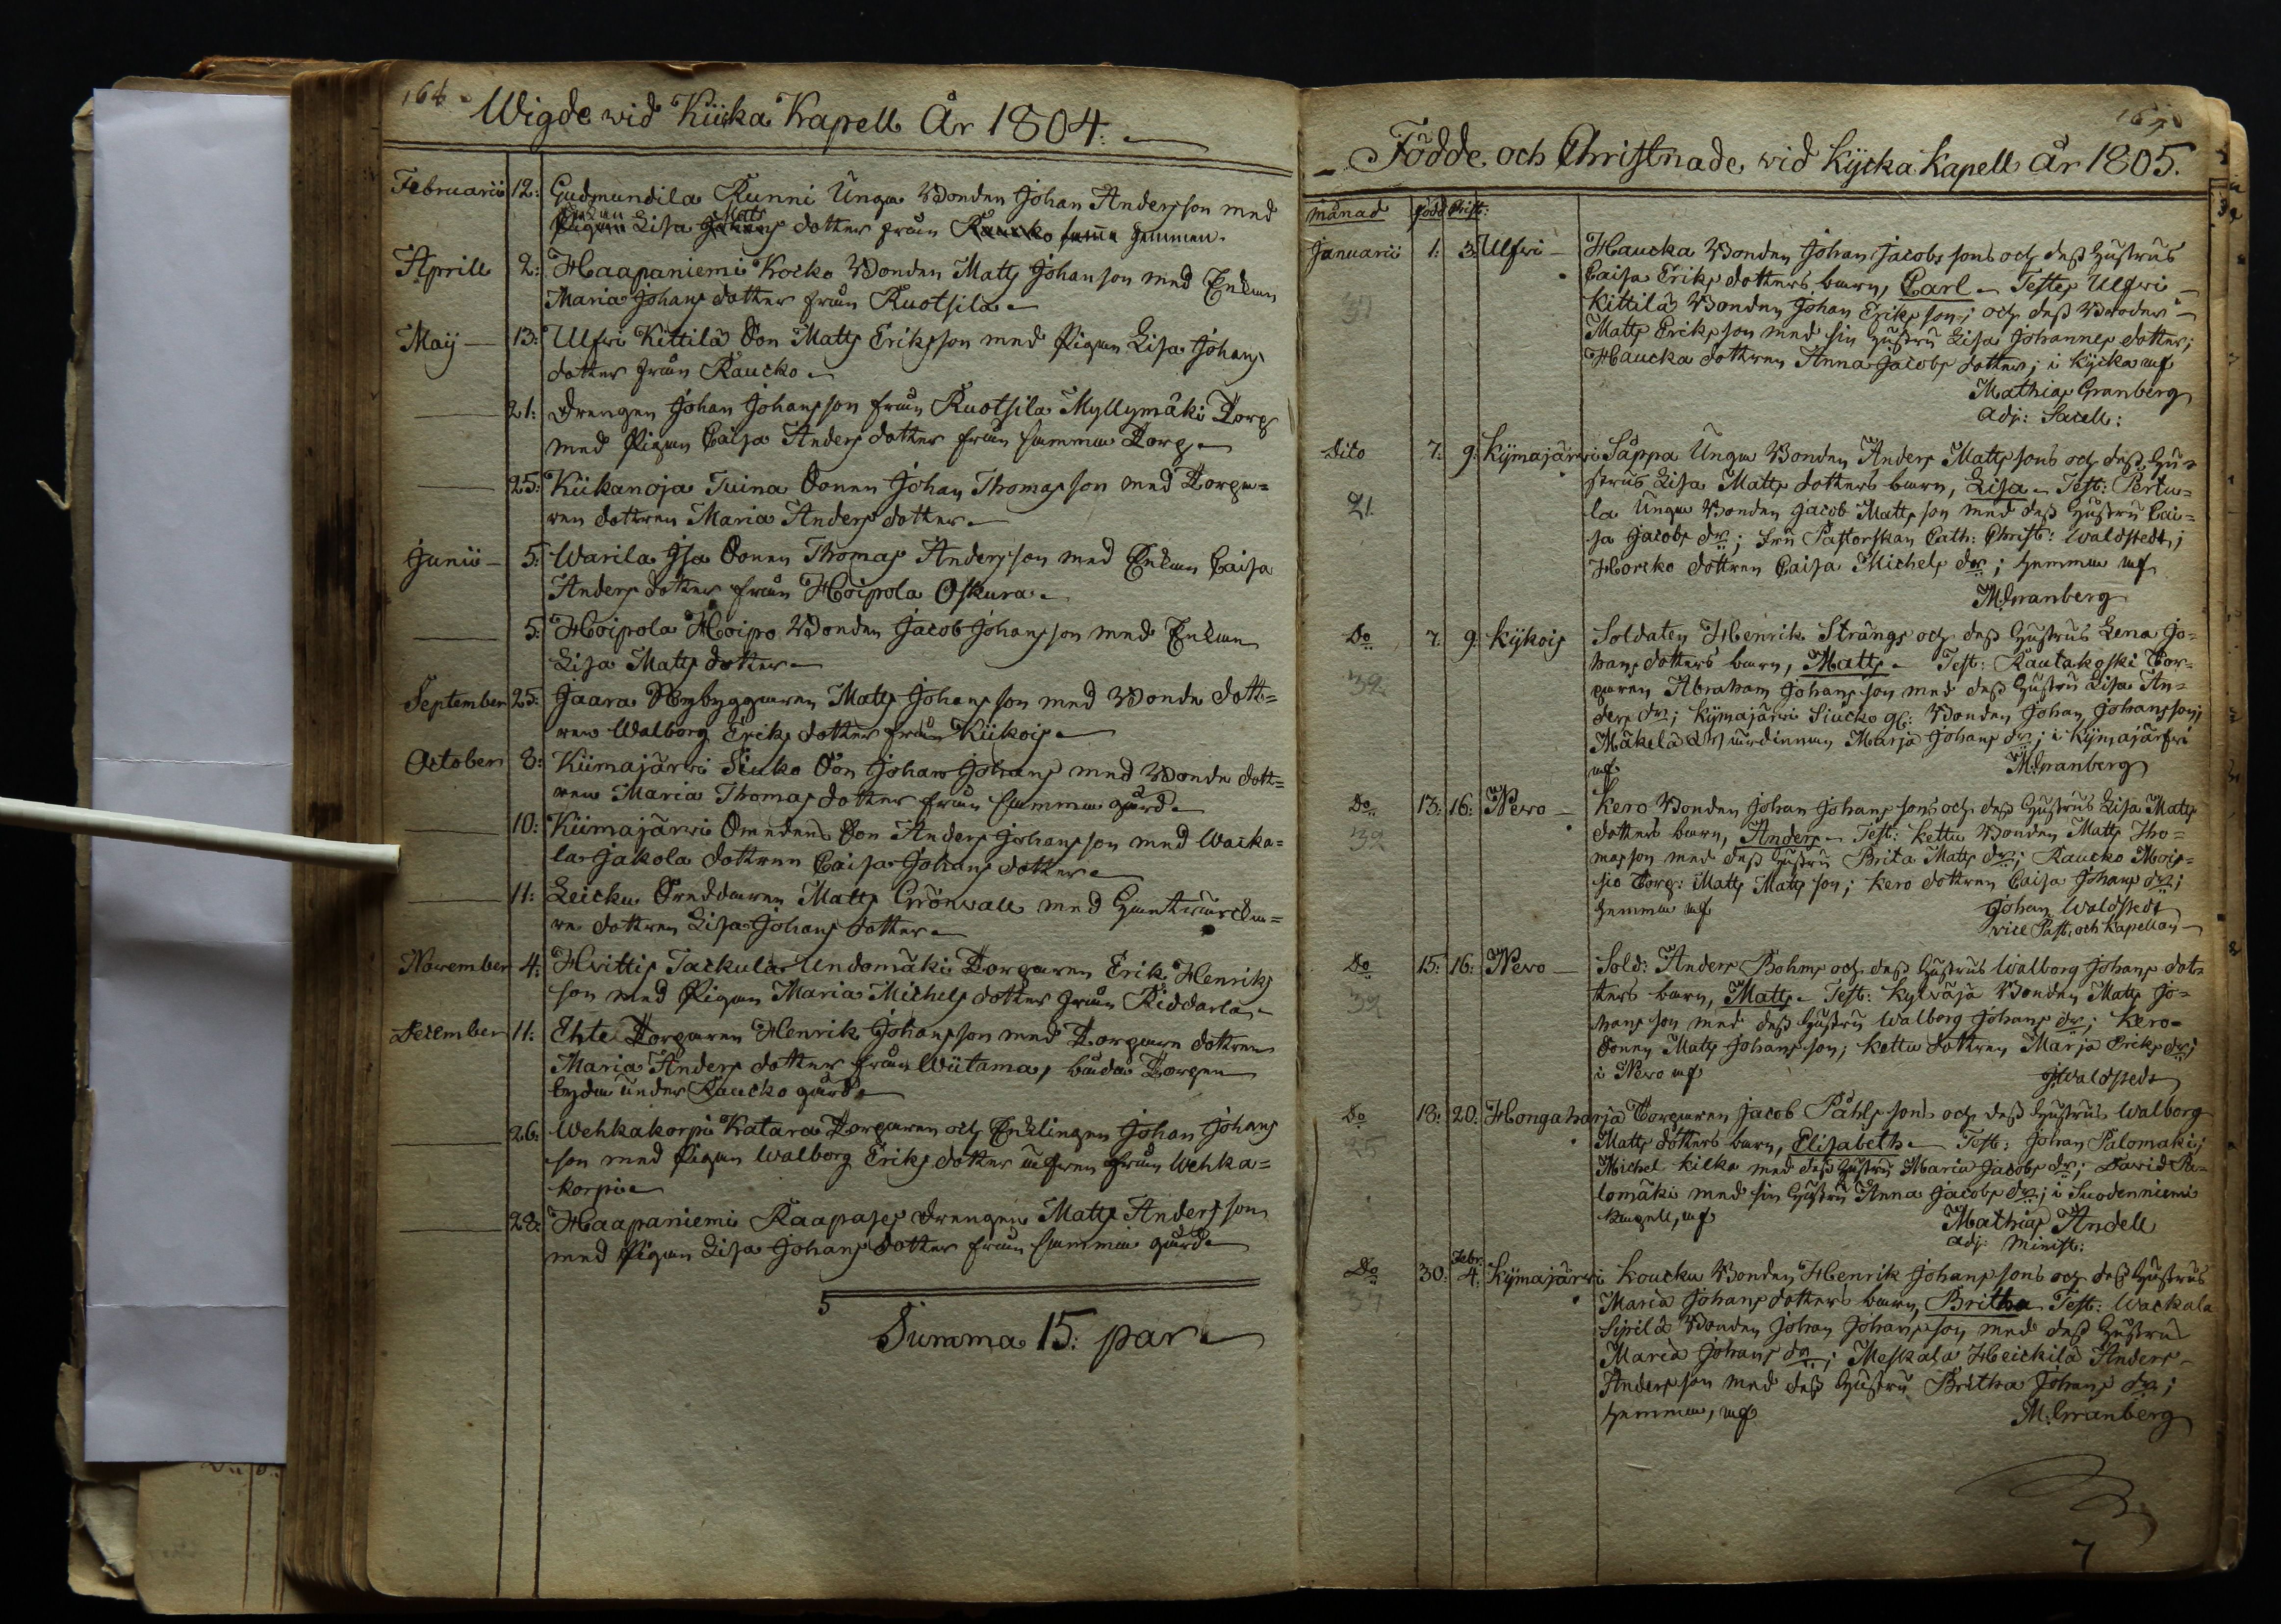 164
Wigde wid Kiika Kapell År 1804.
Februarii 12: Gudmundila Runni Unga Bonden Johan Andersson med
Enkan Lisa Matts dotter från Raucko samma hemman.
Aprill 2: Haapaniemi Kocko Bonden Matts Johanson med Enkan
Maria Johans dotter från Ruotsila
Maij 13: Ulfwi Kittilä Son Matts Eriksson med Pigan Lisa Johans
dotter från Raucko
21: Drengen Johan Johansson från Ruotsila Myllymäki Torp
med Pigan Caisa Anders dotter från samma Torp
25: Kiikanoja Tuina Sonen Johan Thomasson med Torpa=
ren dottren Maria Anders dotter
Junii 5: Warila Isa Sonen Thomas Andersson med Enkan Caisa
Anders dotter från Hoipola Oskura
5: Hoipola Hoipo Bonden Jacob Johansson med Enkan
Lisa Matts dotter
September 25: Jaara Nybyggaren Matts Johansson med Bonde dott=
ren Walborg Eriks dotter från Kiikois
October 8: Kiimajärwi Siuko Son Johan Johans med Bonde dott=
ren Maria Thomas dotter från samma gård
10: Kiimajärwi Omeden Son Anders Johansson med Wacka=
la Jakola dottren Caisa Johans dotter
11: Leicku Smeddaren Matts Grönwall med
re dottren Lisa Johans dotter
November 4: Hvittis Tackula Undomäki Torparen Erik Henriks
son med Pigan Maria Michels dotter från Riddarla
December 11: Ehte Torparen Henrik Johansson med Torpare dottren
Maria Anders dotter från Wiitama, båda Torpen
lyda under Raucko gård
26: Wehkakorpi Katara Torparen och Enklingen Johan Johans
son med Pigan Walborg Eriks dotter äfwen från Wehka=
korpi
28: Haapaniemi Raapases Drengen Matts Andersson
med Pigan Lisa Johans dotter från samma gård
Summa 15: par
Födde och Christnade wid Kycka Kapell År 1805.
månad född Christ:
Januarii 1: 3: Ulfwi Haucka Bonden Johan Jacobs sons och dess hustrus
Caisa Eriks dotters barn, Carl Testes Ulfwi
37 Kittilä Bonden Johan Eriksson; och dess Broder
Matts Eriksson med sin hustru Lisa Johannes dotter;
Haucka dottren Anna Jacobs dotter; i Kycka
Mathias Granberg
Adj: Sacell:
Dito 7: 9: Kijmajärwi Säppa Unga Bonden Anders Matts sons och dess hu=
strus Lisa Matts dotters barn, Lisa Test: Pertu=
21. la Unga Bonden Jacob Matts son med dess hustru Cai=
sa Jacobs dr; Fru Pastorskan Cath: Christ: Waldstedt;
Horcko dottren Caisa Michels dr; hemma
M. Granberg
Do 7: 9: Kijkois Soldaten Henrik Strångs och dess hustrus Lena Jo=
hans dotters barn, Matts Test: Rautakoski Tor=
39. paren Abraham Johansson med dess hustru Lisa An=
ders dr; Kijmajärwi Siucko gl: Bonden Johan Johansson;
Mäkelä wärdinnan Marja Johans dr; i Kijmajärfwi
M. Granberg
Do 13: 16: Nero Kero Bonden Johan Johans sons och dess hustrus Lisa Matts
dotters barn, Anders Test: Kettu Bonden Matts Tho=
39 masson med dess hustru Brita Matts dr; Raucko Mois=
sio Torp: Matts Matts son; Kero dottren Caisa Johans dr;
hemma Johan Waldstedt
vice Past: och Kapellan
Do 15: 16: Nero Sold: Anders Bohms och dess hustrus Walborg Johans dot=
ters barn, Matts Test: Kylväjä Bonden Matts Jo=
39 hans son med dess hustru Walborg Johans dr; Kero
Sonen Matts Johansson; Kettu dottren Marja Eriks dr;
i Nero
J. Waldstedt
Do 18: 20: Hongaharja Torparen Jacob Påhls sons och dess hustrus Walborg
Matts dotters barn, Elisabeth Test: Johan Palomäki;
25 Michel Kilka med dess hustru Maria Jacobs dr; David Pa=
lomäki med sin hustru Anna Jacobs dr; i Suodenniemi
kapell,
Mathias Andell
adj: Minist:
Do 30: Febr. 4: Kijmajärwi Koucku Bonden Henrik Johans sons och dess hustrus
37 Maria Johans dotters barn, Britha Test: Wackala
Sipilä Bonden Johan Johansson med dess hustru
Maria Johans dr; Meskala Heickilä Anders
Andersson med dess hustru Britha Johans dr;
hemma,
M. Granberg
7